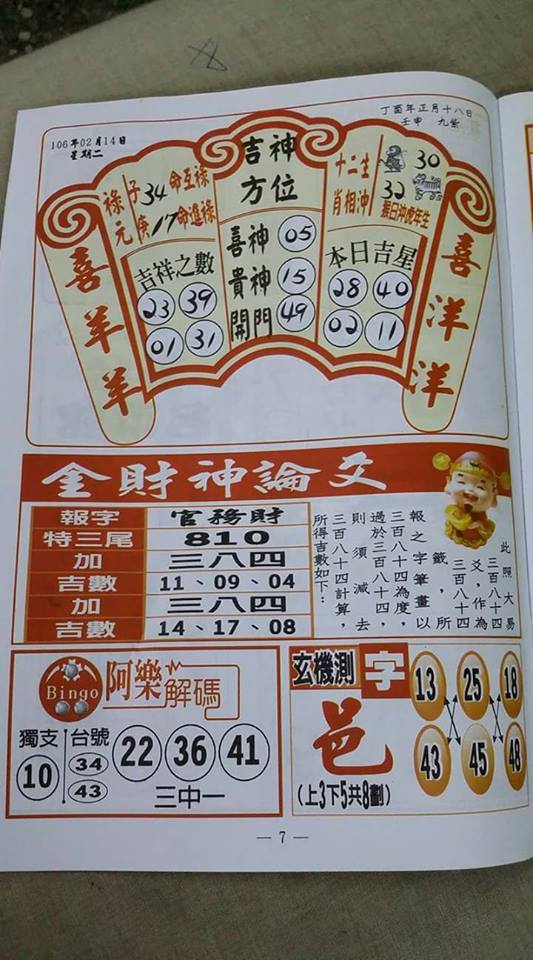 106年02月14日
星期二
丁酉年正月十八日
壬申 九紫
喜羊羊
祿元
子34命互祿
庚17命進祿
吉祥之數
23 39
01 31
吉神
方位
喜神 05
貴神 15
開門 49
十二生
肖相沖
30
32
猴日沖虎年生
本日吉星
28 40
02 11
喜洋洋
金財神論爻
報字 官務財
特三尾 810
加 三八四
吉數 11、09、04
加 三八四
吉數 14、17、08
此照大易
三百八十四
爻，作為
三百八十四
籤，所
報之字筆畫以
三百八十四為度，
過於三百八十四
則須減去
三百八十四計算，
所得吉數如下：
Bingo 阿樂解碼
獨支 10
台號 34 43
22 36 41
三中一
玄機測字
邑
(上3下5共8劃)
13 25 18
43 45 48
— 7 —